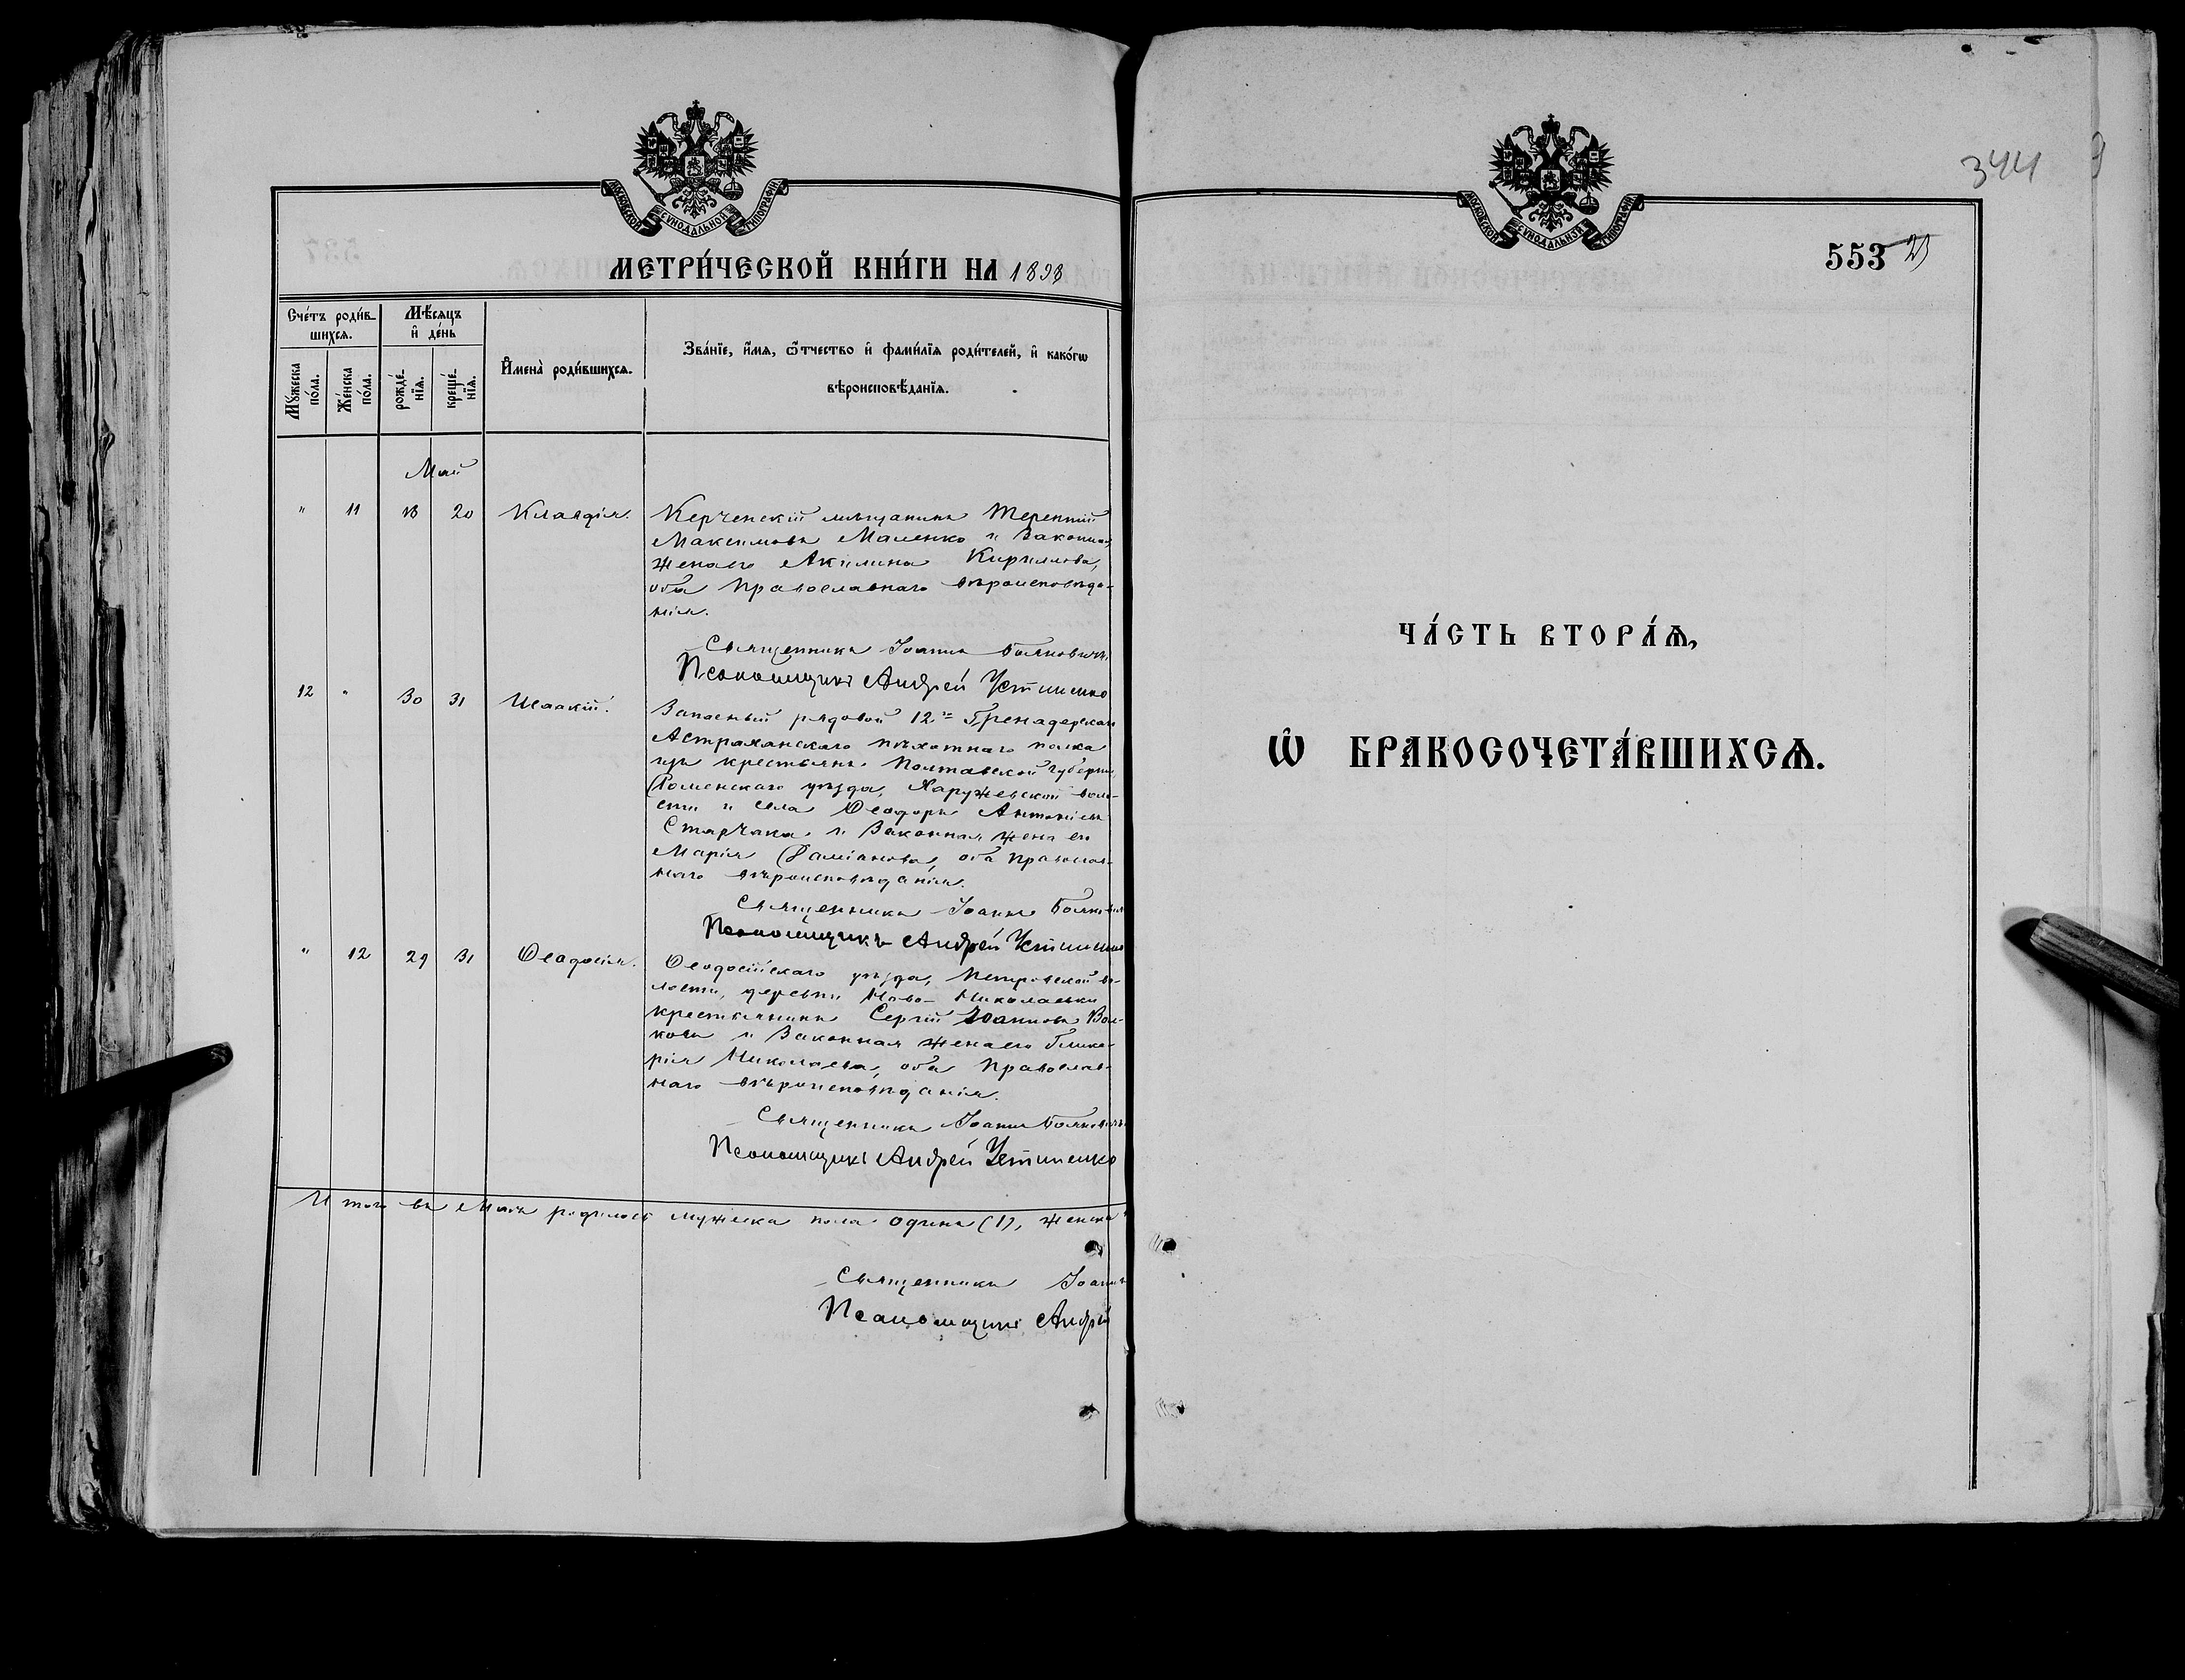 МОСКОВСКОЙ СѴНОДАЛЬНОЙ ТИПОГРАФІИ
МЕТРИ́ЧЕСКОЙ КНИ́ГИ НА 1898
Сче́тъ роди́в-
шихсѧ.
Мѣ́сѧцъ
и҆ де́нь
И҆мена̀ роди́вшихсѧ.
Зва́нїе, и҆́мѧ, ѻ҆́тчество и҆ фами́лїѧ роди́телей, и҆ како́гѡ
вѣроисповѣ́данїѧ.
Мꙋ́жеска
по́ла.
Же́нска
по́ла.
рожде́-
нїѧ.
креще́-
нїѧ.
Май
" 11 18 20 Клавдія. Керченскій мѣщанинъ Терентій
Максимовъ Маленко и законная
жена его Акилина Кириллова,
оба православнаго вѣроисповѣда-
нія.
Священникъ Іоаннъ
Псаломщикъ Андрей Устименко
12 " 30 31 Исаакій. Запасный рядовой 12го Гренадерскаго
Астраханскаго пѣхотнаго полка
изъ крестьянъ Полтавской губерніи,
Роменскаго уѣзда, Хоружевской воло-
сти и села Ѳеодоръ Антоніевъ
Старчакъ и законная жена его
Марія Даміанова, оба православ-
наго вѣроисповѣданія.
Священникъ Іоаннъ
Псаломщикъ Андрей Устименко
" 12 29 31 Ѳеодосія. Ѳеодосійскаго уѣзда, Петровской во-
лости, деревни Ново-Николаевки
крестьянинъ Сергій Іоанновъ Вол-
ковъ и законная жена его Глике-
рія Николаева, оба православ-
наго вѣроисповѣданія.
Священникъ Іоаннъ
Псаломщикъ Андрей Устименко
Итого въ Маѣ родилось мужеска пола одинъ (1), женска
Священникъ Іоаннъ
Псаломщикъ Андрей
344
МОСКОВСКОЙ СѴНОДАЛЬНОЙ ТИПОГРАФІИ
553
ЧА́СТЬ ВТОРА́Ѧ,
Ѡ҆ БРАКОСОЧЕТА́ВШИХСѦ.